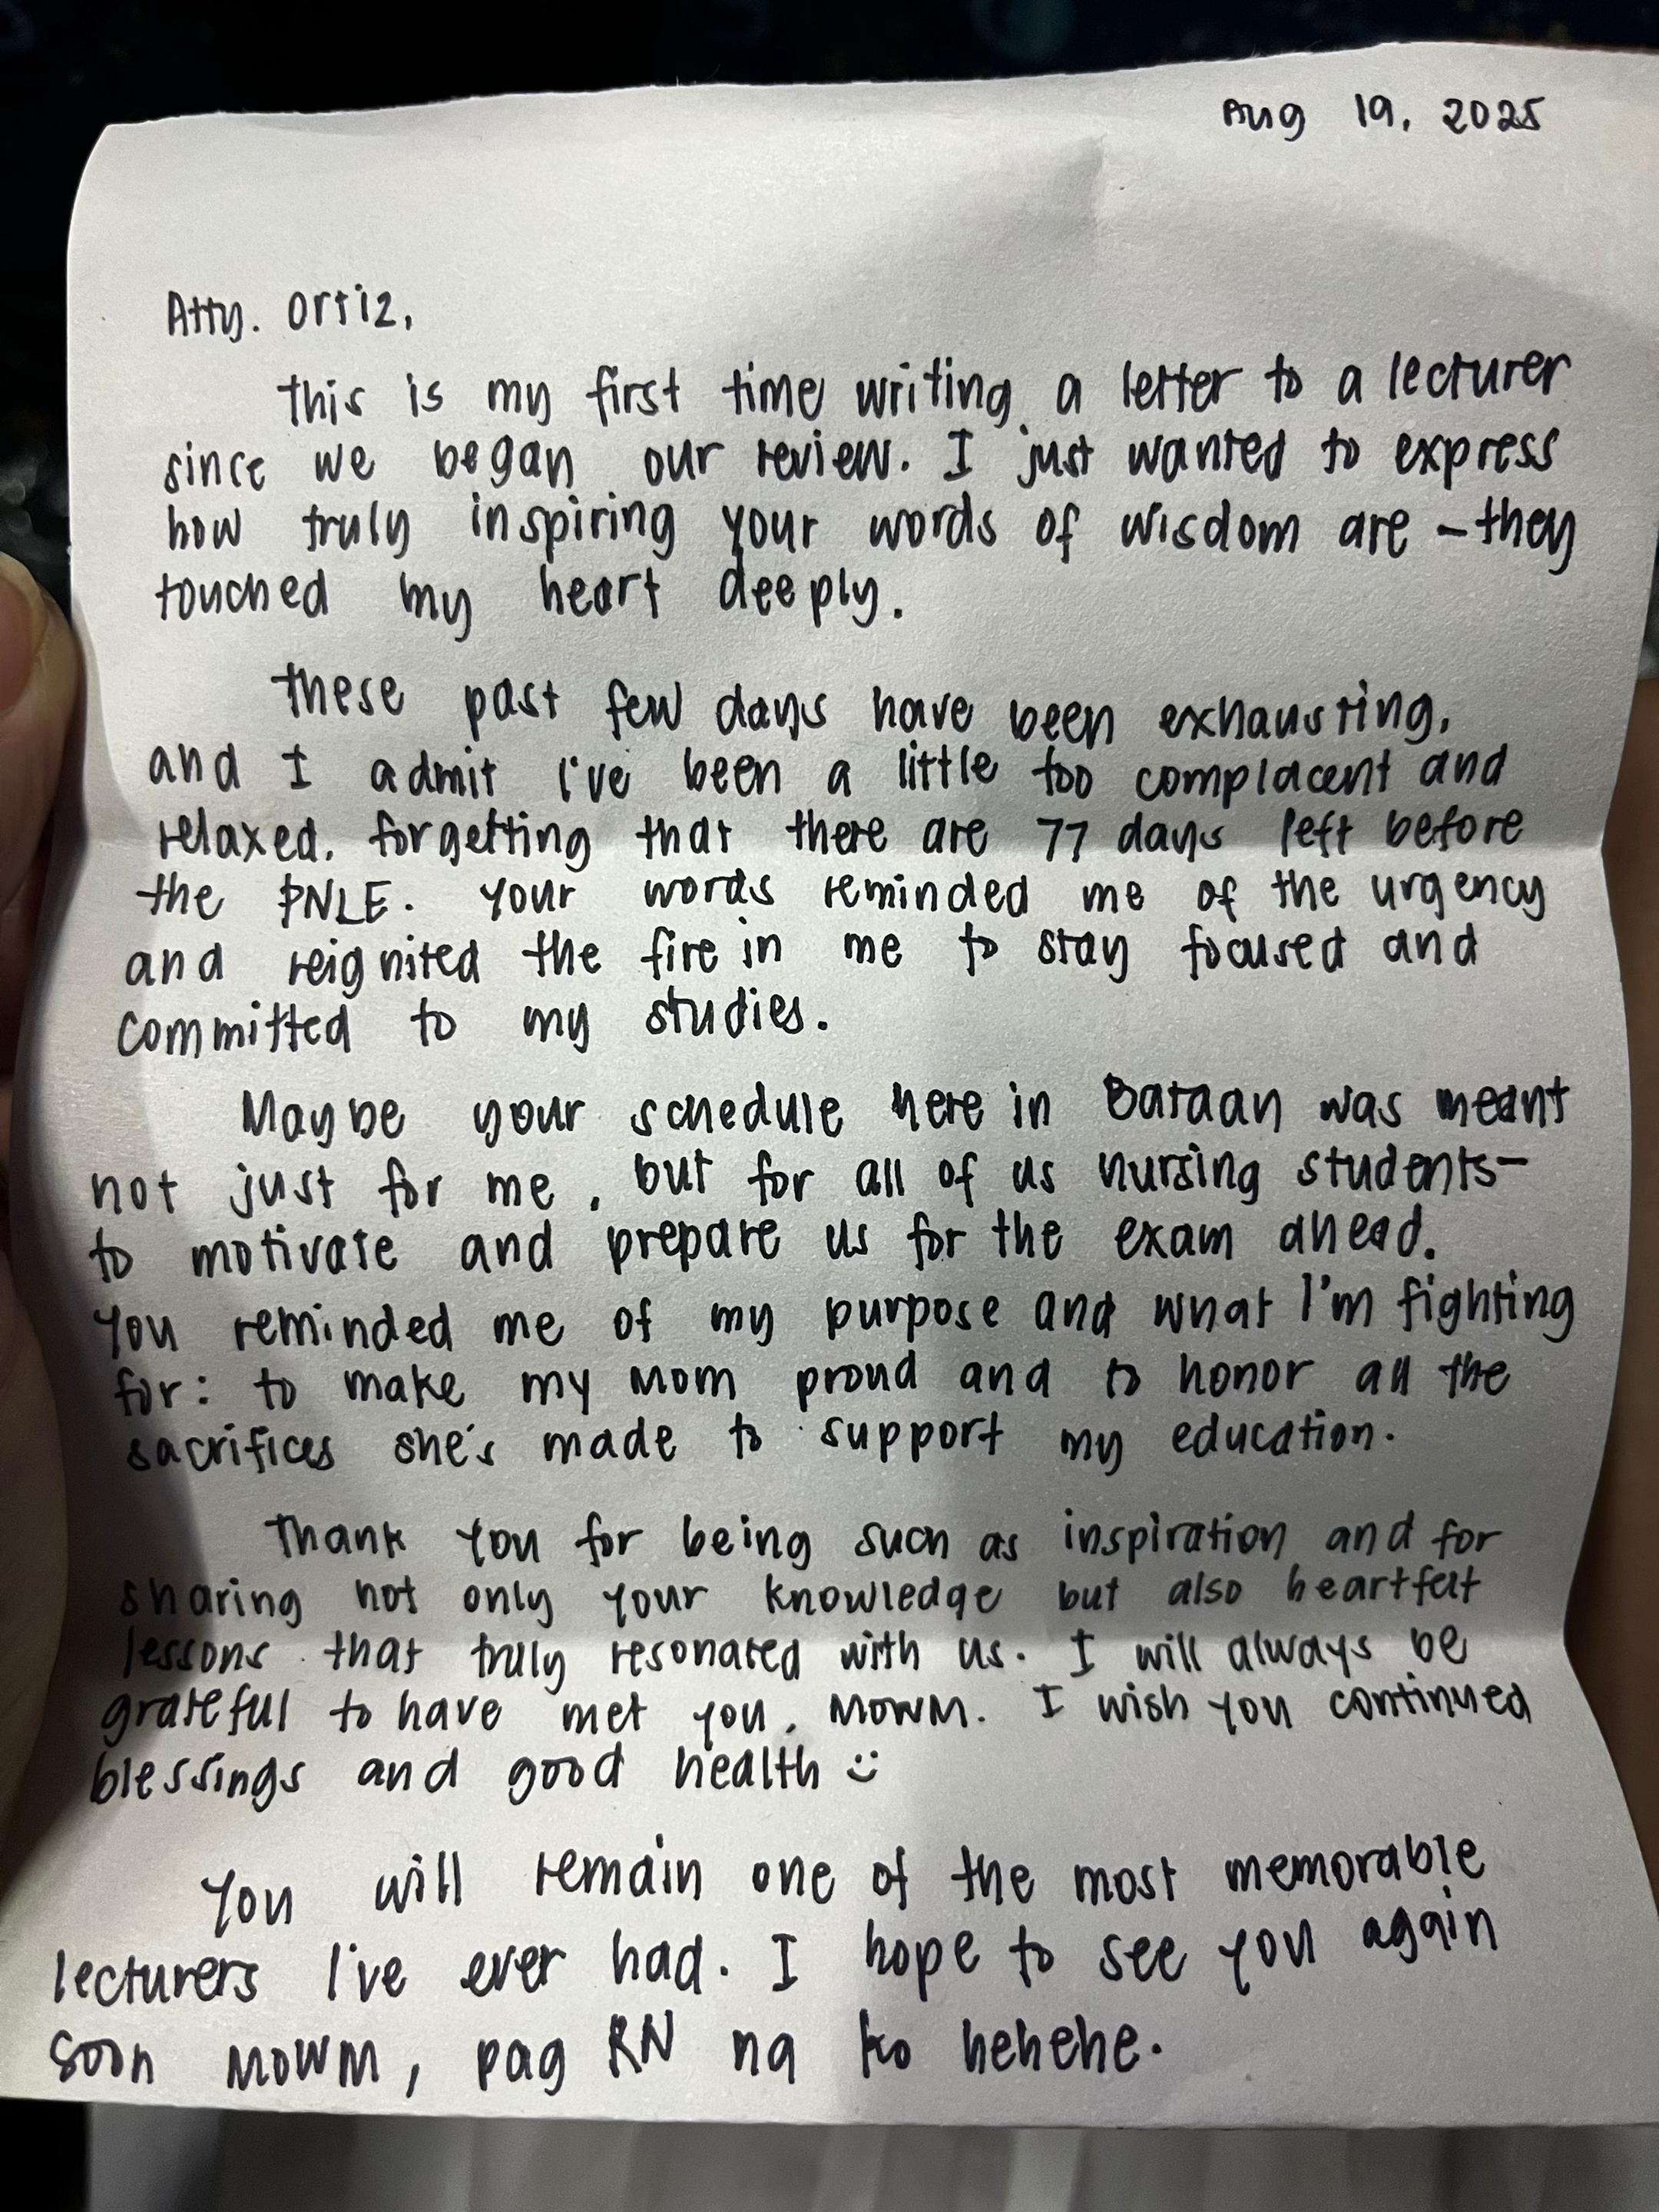 Aug 19, 2025
Atty. Ortiz,
This is my first time writing a letter to a lecturer
since we began our review. I just wanted to express
how truly inspiring your words of wisdom are – they
touched my heart deeply.
These past few days have been exhausting,
and I admit I've been a little too complacent and
relaxed, forgetting that there are 77 days left before
the PNLE. Your words reminded me of the urgency
and reignited the fire in me to stay focused and
committed to my studies.
Maybe your schedule here in Bataan was meant
not just for me, but for all of us nursing students–
to motivate and prepare us for the exam ahead.
You reminded me of my purpose and what I'm fighting
for: to make my mom proud and to honor all the
sacrifices she's made to support my education.
Thank you for being such as inspiration and for
sharing not only your knowledge but also heartfelt
lessons that truly resonated with us. I will always be
grateful to have met you, MOWM. I wish you continued
blessings and good health :)
You will remain one of the most memorable
lecturers I've ever had. I hope to see you again
soon MOWM, pag RN na ko hehehe.